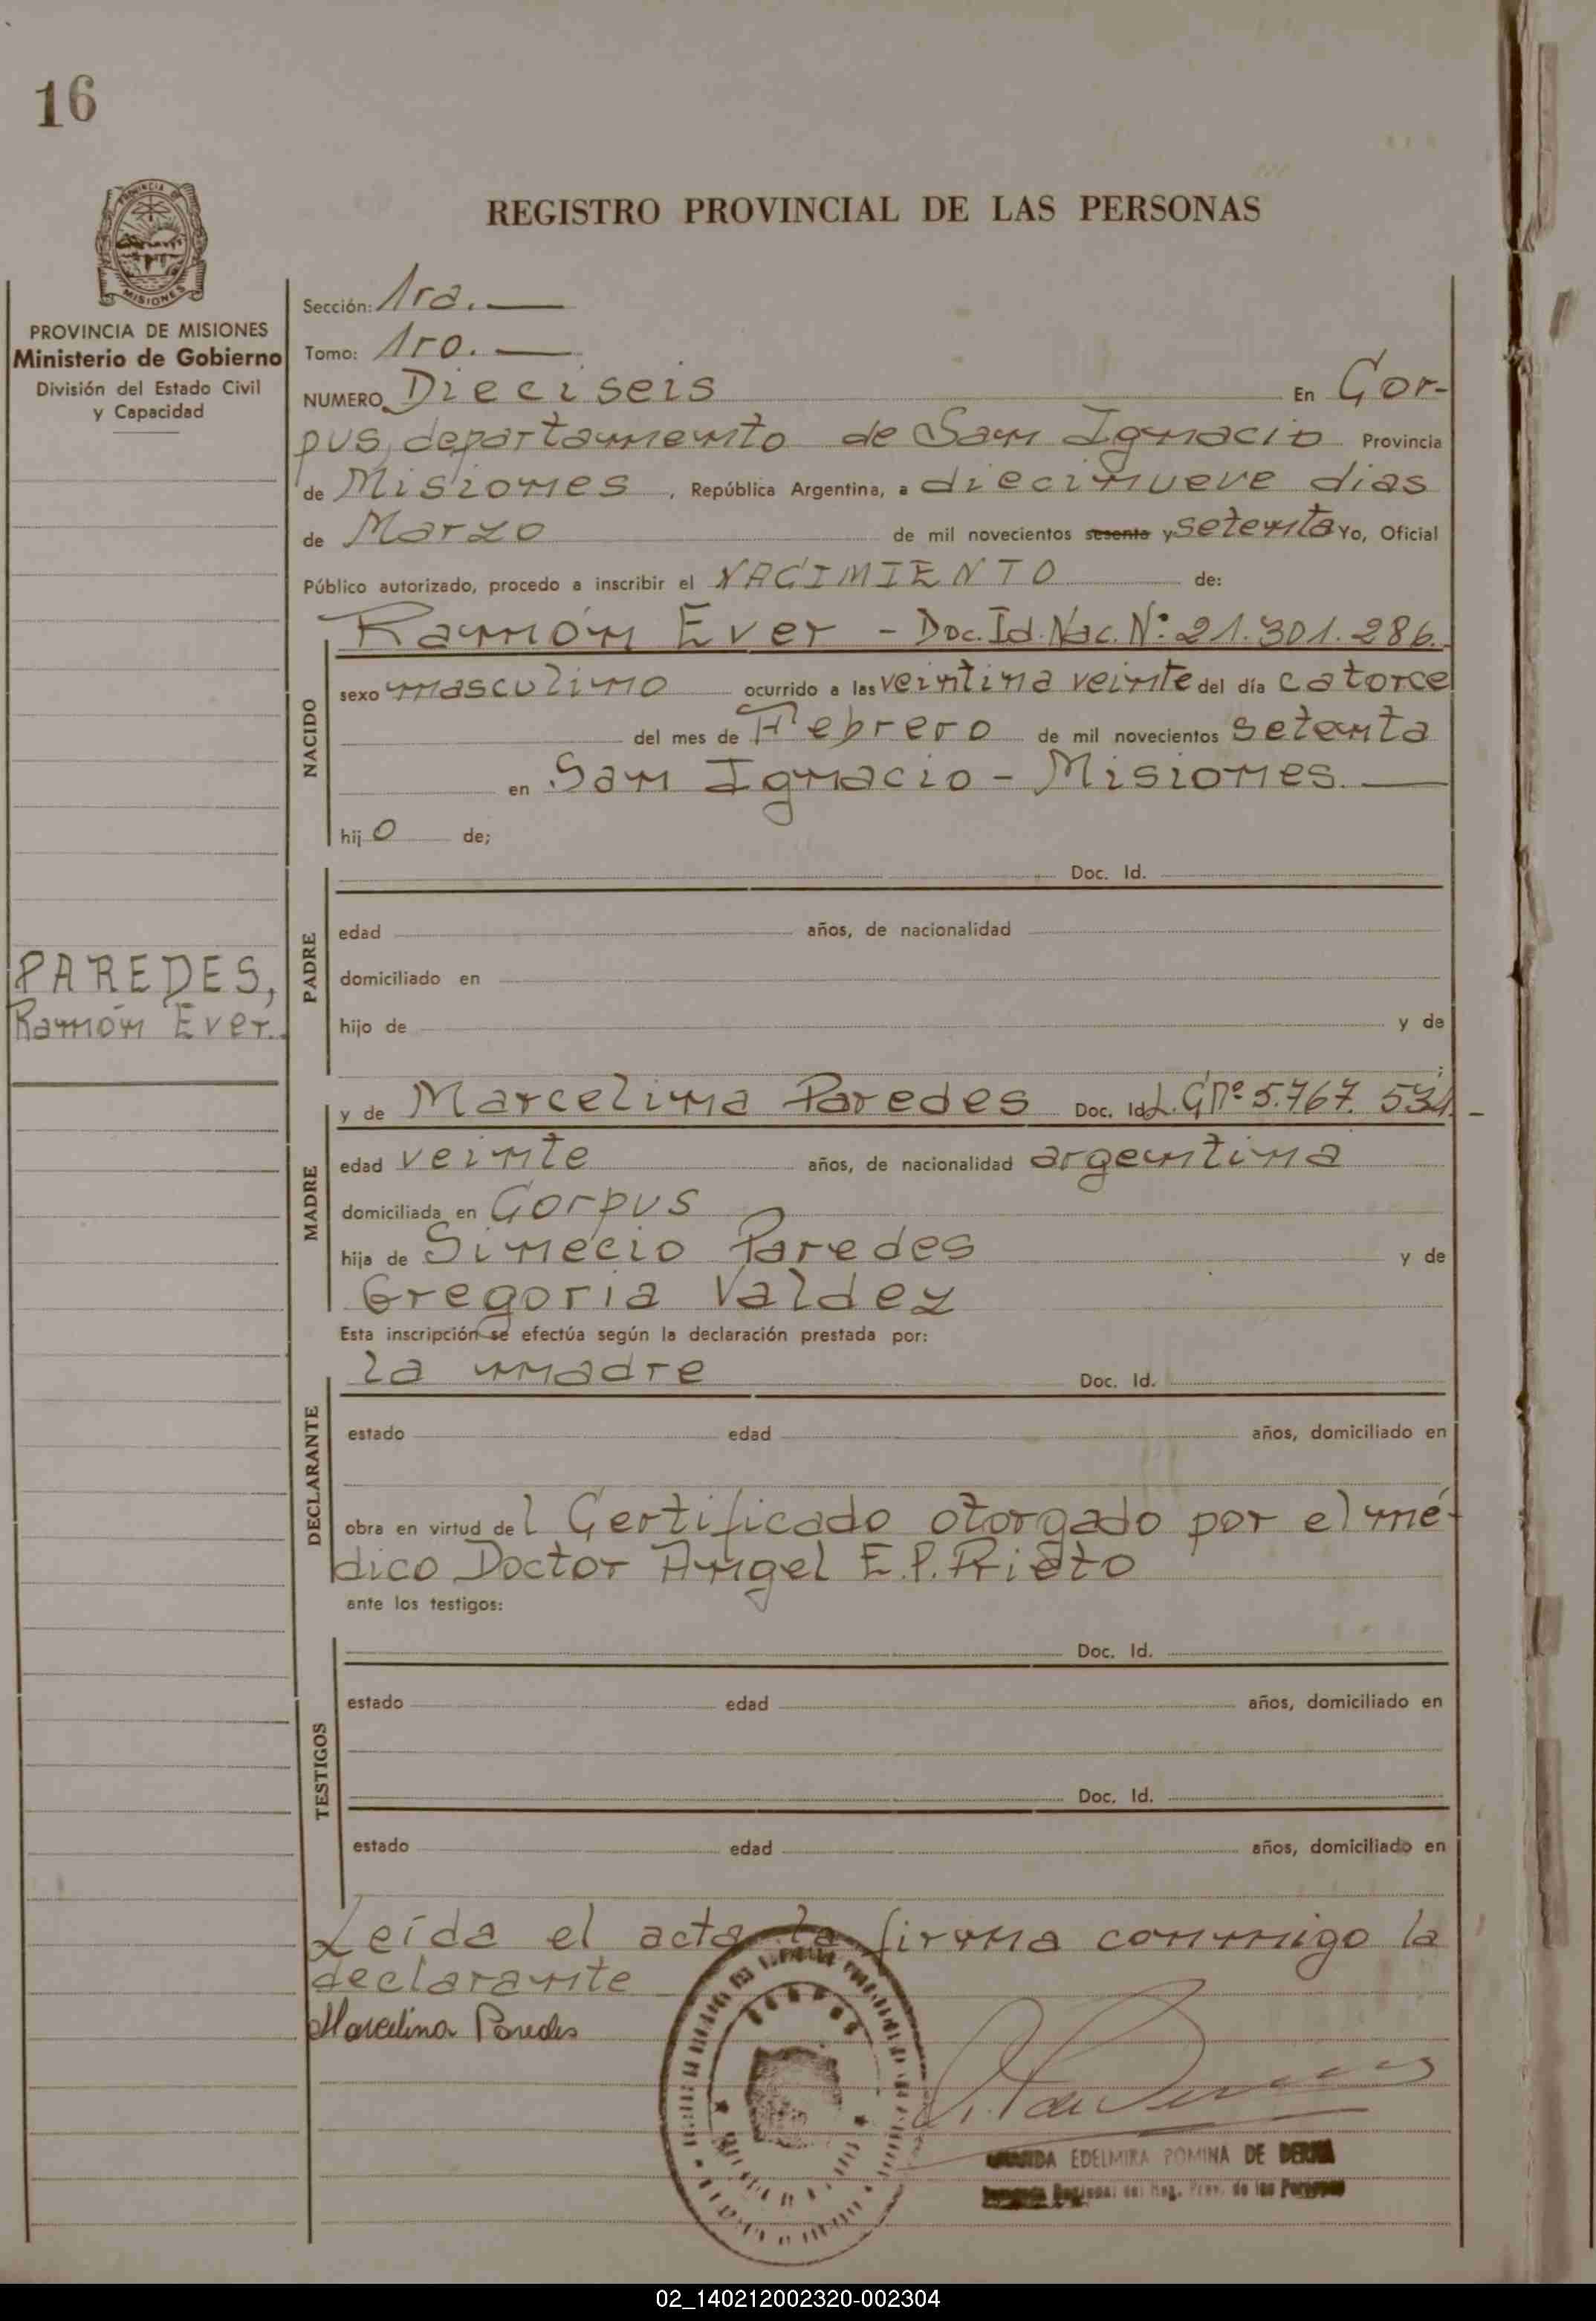 16
REGISTRO PROVINCIAL DE LAS PERSONAS
PROVINCIA DE
MISIONES
PROVINCIA DE MISIONES
Ministerio de Gobierno
División del Estado Civil
y Capacidad
Sección: 1ra.
Tomo: 1ro.
NUMERO Dieciseis En Cor-
pus, departamento de San Ignacio Provincia
de Misiones, República Argentina, a diecinueve dias
de Marzo de mil novecientos sesenta y setenta Yo, Oficial
Público autorizado, procedo a inscribir el NACIMIENTO de:
Ramón Ever - Doc. Id. Nac. Nº: 21.301.286.
NACIDO
sexo masculino ocurrido a las veintina veinte del día catorce
del mes de Febrero de mil novecientos setenta
en San Ignacio - Misiones.
hijo de;
PADRE
Doc. Id.
edad años, de nacionalidad
domiciliado en
hijo de y de
;
PAREDES,
Ramón Ever.
MADRE
y de Marcelina Paredes Doc. Id. L.C Nº 5.767.534.-
edad veinte años, de nacionalidad argentina
domiciliada en Corpus
hija de Simecio Paredes y de
Gregoria Valdez
Esta inscripción se efectúa según la declaración prestada por:
DECLARANTE
la madre Doc. Id.
estado edad años, domiciliado en
obra en virtud del Certificado otorgado por el mé-
dico Doctor Angel E.P. Prieto
ante los testigos:
TESTIGOS
Doc. Id.
estado edad años, domiciliado en
Doc. Id.
estado edad años, domiciliado en
Leída el acta la firma conmigo la
declarante
Marcelina Paredes
EDELMIRA POMINA DE
Reg. Prov. de las Personas
02_140212002320-002304